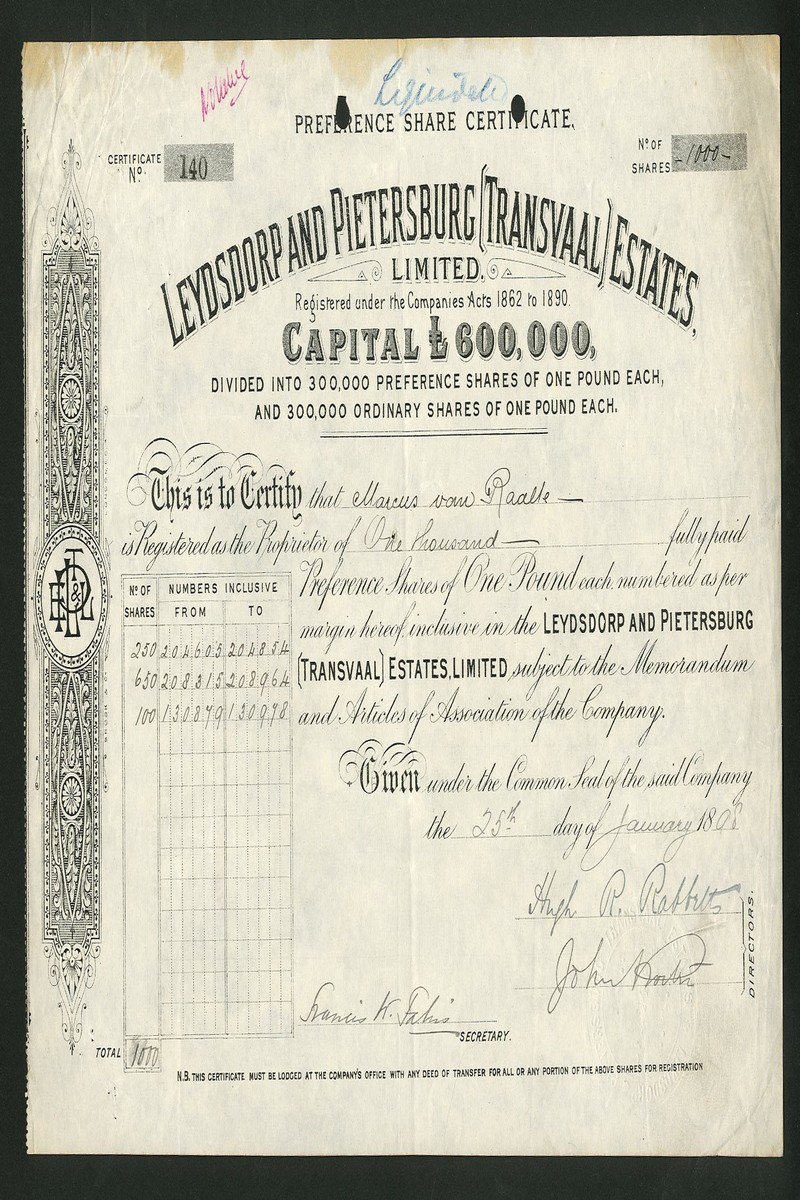 PREFERENCE SHARE CERTIFICATE.
CERTIFICATE No. 140
No. OF SHARES -1000-
LEYDSDORP AND PIETERSBURG (TRANSVAAL) ESTATES,
LIMITED.
Registered under the Companies Acts 1862 to 1890.
CAPITAL £600,000,
DIVIDED INTO 300,000 PREFERENCE SHARES OF ONE POUND EACH,
AND 300,000 ORDINARY SHARES OF ONE POUND EACH.
This is to Certify that Marcus van Raalte
is Registered as the Proprietor of One thousand fully paid
Preference Shares of One Pound each numbered as per
margin hereof, inclusive in the LEYDSDORP AND PIETERSBURG
(TRANSVAAL) ESTATES, LIMITED subject to the Memorandum
and Articles of Association of the Company.
No. OF SHARES NUMBERS INCLUSIVE
FROM TO
250 204605 204854
650 208315 208964
100 130879 130978
Given under the Common Seal of the said Company
the 25th day of January 1898
Hugh R. Rabbetts
John
DIRECTORS.
Francis K.
SECRETARY.
TOTAL 1000
N.B. THIS CERTIFICATE MUST BE LODGED AT THE COMPANY'S OFFICE WITH ANY DEED OF TRANSFER FOR ALL OR ANY PORTION OF THE ABOVE SHARES FOR REGISTRATION